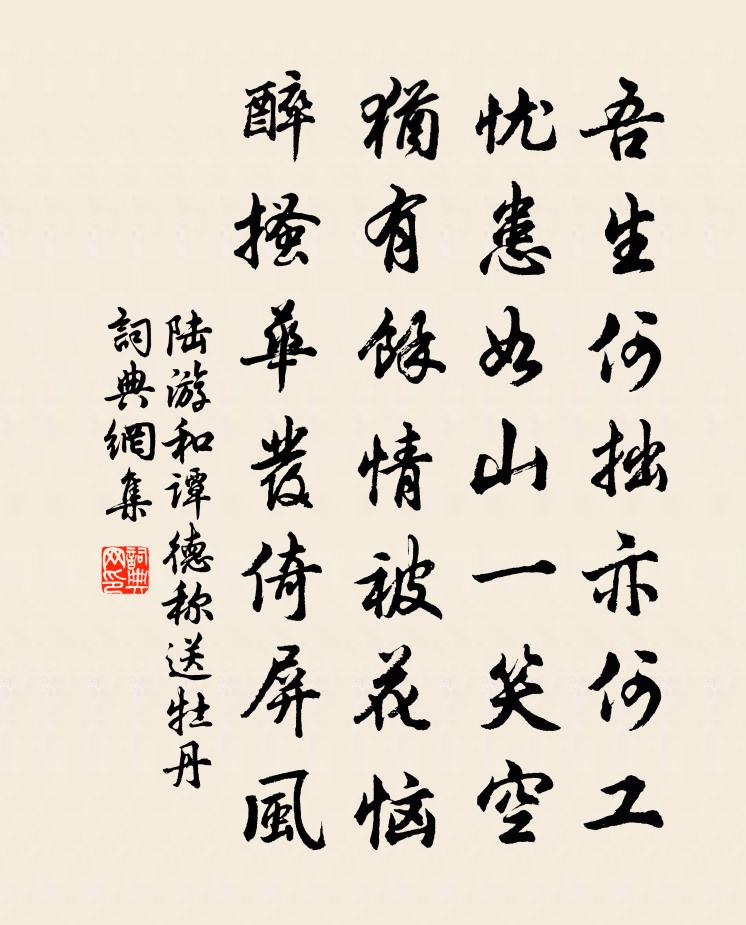 吾生何拙亦何工
忧患如山一笑空
猶有餘情被花恼
醉搔華髮倚屏風
陆游和谭德称送牡丹
詞典網集
詞典网印